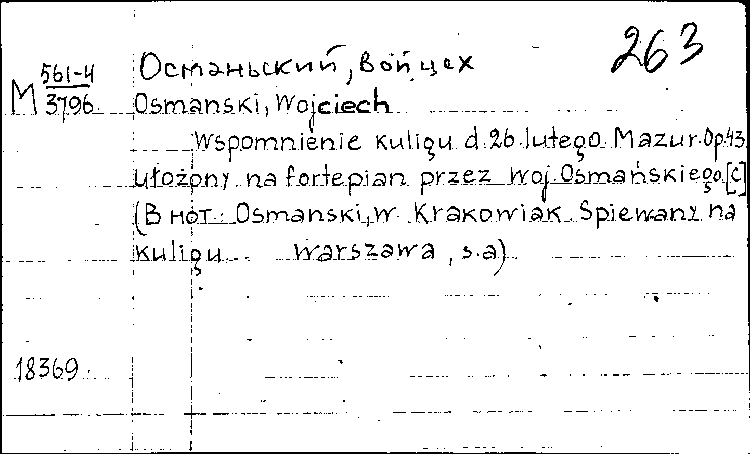 263
М 561-4
3796
Османьский, Войцех
Osmanski, Wojciech
Wspomnienie kuligu d. 26 lutego. Mazur. Op. 43.
ułożony na fortepian przez Woj. Osmańskiego. [С]
(В нот.: Osmanski, W. Krakowiak. Spiewany na
kuligu. Warszawa, s.a)
18369.